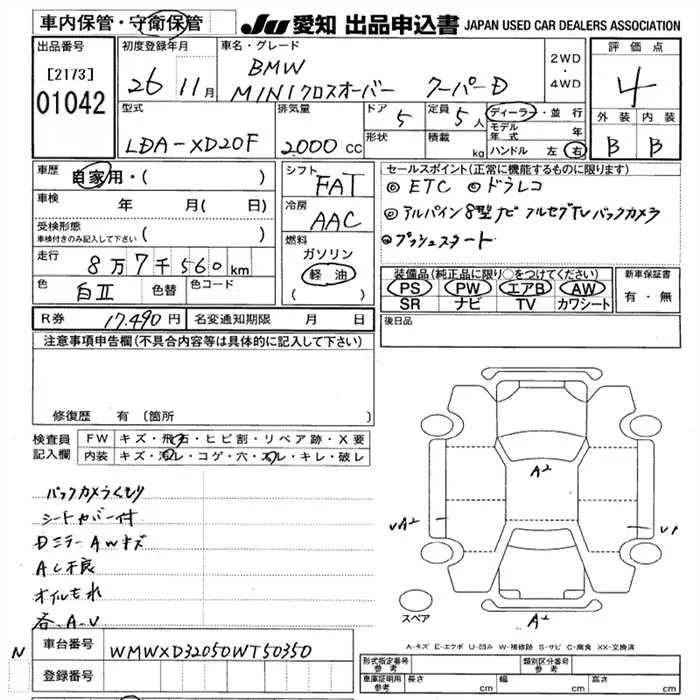 車内保管・守衛保管 JU 愛知 出品申込書 JAPAN USED CAR DEALERS ASSOCIATION
出品番号
[2173]
01042
初度登録年月
26年11月
車名・グレード
BMW
MINIクロスオーバー クーパーD
2WD
・
4WD
評価点
4
外装 内装
B B
型式
LDA-XD20F
排気量
2000 CC
ドア 5
形状
定員 5人
積載 kg
ディーラー・並行
モデル年式 年
ハンドル 左 右
車歴
自家用・( )
車検
年 月( 日)
受検形態
車検付きのみ記入して下さい ( )
走行
8万7千560km
色
白II
色替
色コード
シフト
FAT
冷房
AAC
燃料
ガソリン
軽油
( )
セールスポイント(正常に機能するものに限ります)
◎ETC ◎ドラレコ
◎アルパイン8型ナビ フルセグTV バックカメラ
◎プッシュスタート
装備品(純正品に限り○をつけてください)
PS PW エアB AW
SR ナビ TV カワシート
新車保証書
有・無
R券 17,490円 名変通知期限 月 日
後日品
注意事項申告欄(不具合内容等は具体的に記入して下さい)
修復歴 有〔箇所 〕
検査員記入欄
FW キズ・飛石・ヒビ割・リペア跡・X要
内装 キズ・汚レ・コゲ・穴・スレ・キレ・破レ
バックカメラくもり
シートカバー付
Dミラー AWキズ
AC不良
オイルもれ
各.A.U
A2
A2
スペア
A2
A-キズ E-エクボ U-凹み W-補修跡 S-サビ C-腐食 XX-交換済
N
車台番号
WMWXD32050WT50350
登録番号
形式指定番号
参考
類別区分番号
参考
車庫証明用
参考
長さ cm 幅 cm 高さ cm